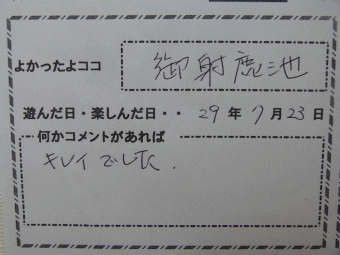 よかったよココ 御射鹿池
遊んだ日・楽しんだ日・・29年7月23日
何かコメントがあれば
キレイでした.